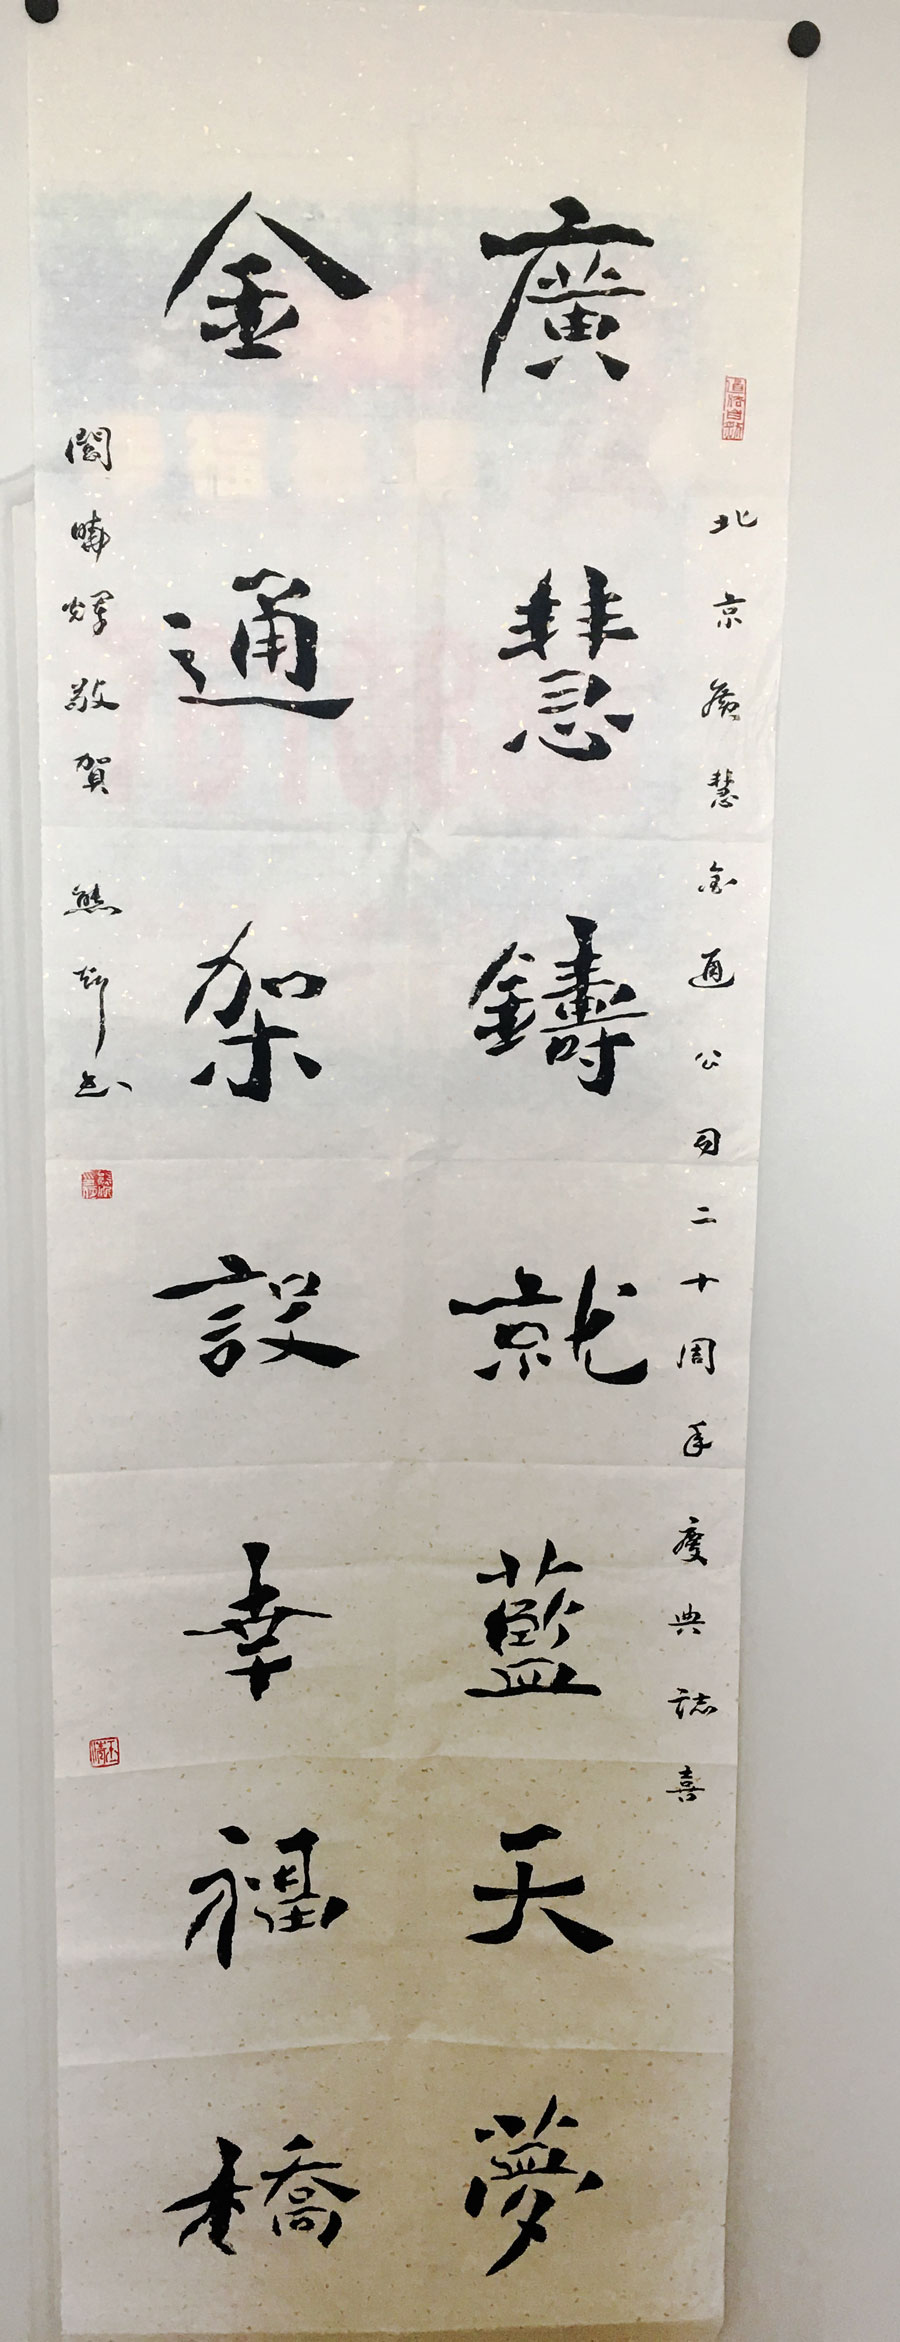 北京广慧金通公司二十周年庆典誌喜
廣慧鑄就藍天夢
金通架設幸福橋
閻曉輝敬賀 熊書